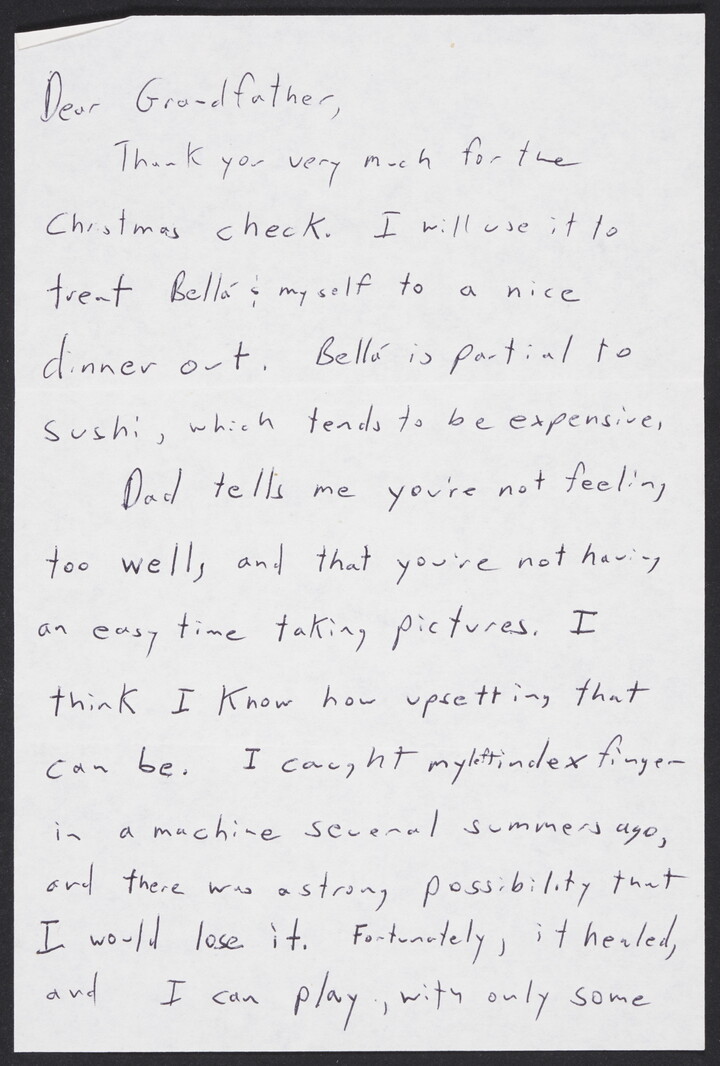 Dear Grandfather,
Thank you very much for the
Christmas check. I will use it to
treat Bellá & myself to a nice
dinner out. Bellá is partial to
sushi, which tends to be expensive.
Dad tells me you're not feeling
too well, and that you're not having
an easy time taking pictures. I
think I know how upsetting that
can be. I caught my left index finger
in a machine several summers ago,
and there was a strong possibility that
I would lose it. Fortunately, it healed,
and I can play, with only some